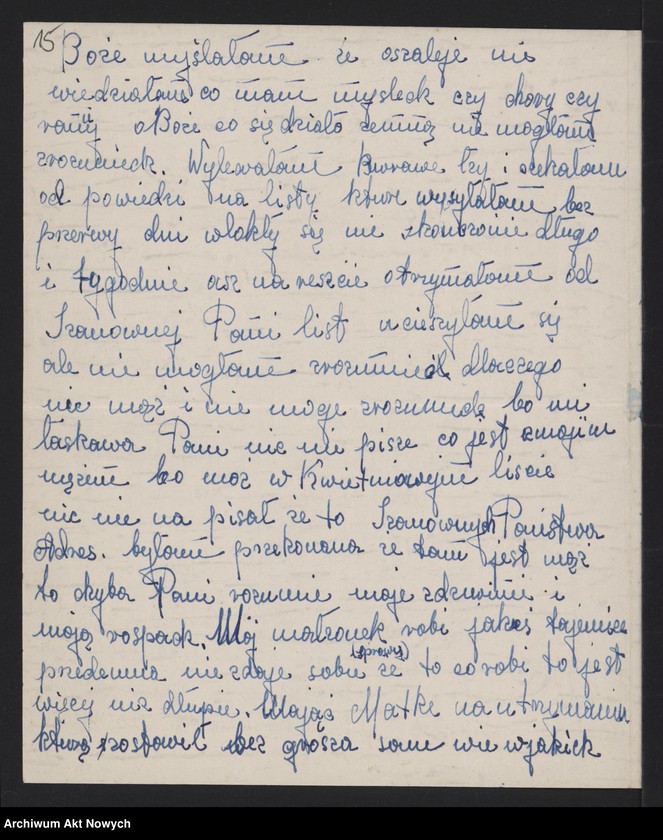 15
Boże myślałam że oszaleje nie
wiedziałam co mam mysleck czy chory czy
ranny o Boże co się działo zemną nie mogłam
zrozumieck. Wylewałam kurawe łzy i czekałam
od powiedzi na listy kture wysyłałam bez
przerwy dni wlokły się nie skonczenie długo
i tygodnie asz na reszcie otrzymałam od
Szanownej Pani list ucieszyłam się
ale nie mogłam zrozumieck dlaczego
nie mąż i nie moge zrozumiedz bo mi
łaskawa Pani nic nie pisze co jest zmojim
mężem bo mąż w Kwietniowym liscie
nic nie na pisał że to Szanownych Państwa
Adres. byłam przekonana że tam jest mąż
to chyba Pani rozumie moje zdziwienie i
moją rospacz. Mój małzonek robi jakąś tajemice
przedemna nie zdaje sobie że to co robi to jest
więcej niz głupie. Mając Matke na utrzymaniu
kturą zostawił bez grosza sam wie wjakick
Archiwum Akt Nowych